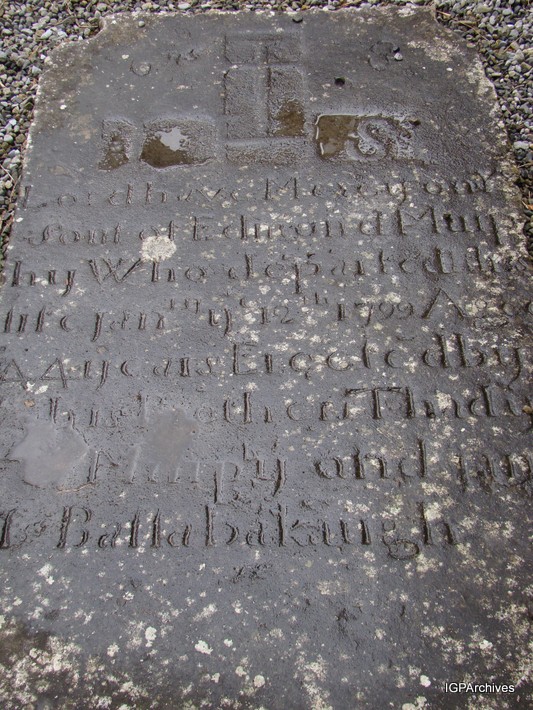 IHS
Lord have Mercy on ye
Soul of Edmond Murp
hy Who departed this
life Janry ye 12th 1799 Aged
44 years Erected by
his Father Thady
Murphy and
Ballabakurgh
IGPArchives